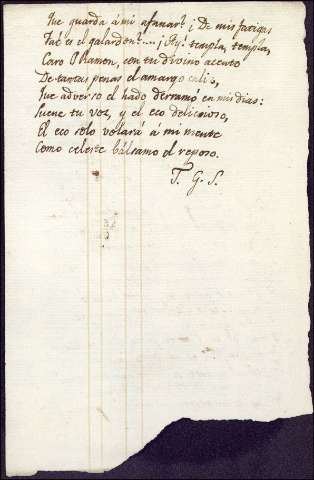 Que guarda á mi afanar? ¡De mis fatigas
Tal es el galardon!.... ¡Ay! templa, templa,
Caro Ramon, con tu divino acento
De tantas penas el amargo caliz,
Que adverso el hado derramó en mis dias:
Suene tu voz, y el eco delicioso,
El eco solo volará á mi mente
Como celeste bálsamo el reposo.
T. G. S.